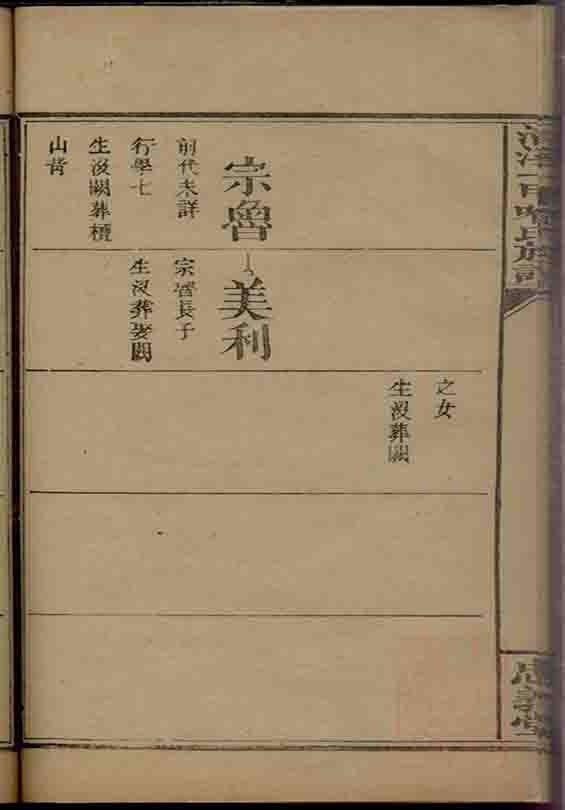 族譜
之女
生沒葬闕
宗魯
美利
前代未詳
宗魯長子
行學七
生沒葬娶闕
生沒闕葬櫝
山背
堂